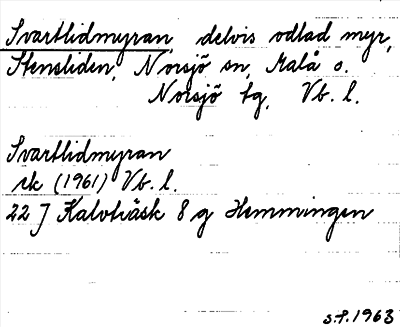 Svartlidmyran, delvis odlad myr,
Stensliden, Norsjö sn, Malå o.
Norsjö tg, Vb. l.
Svartlidmyran
rk (1961) Vb. l.
22 J Kalvträsk 8 g Hemmingen
S.P. 1963